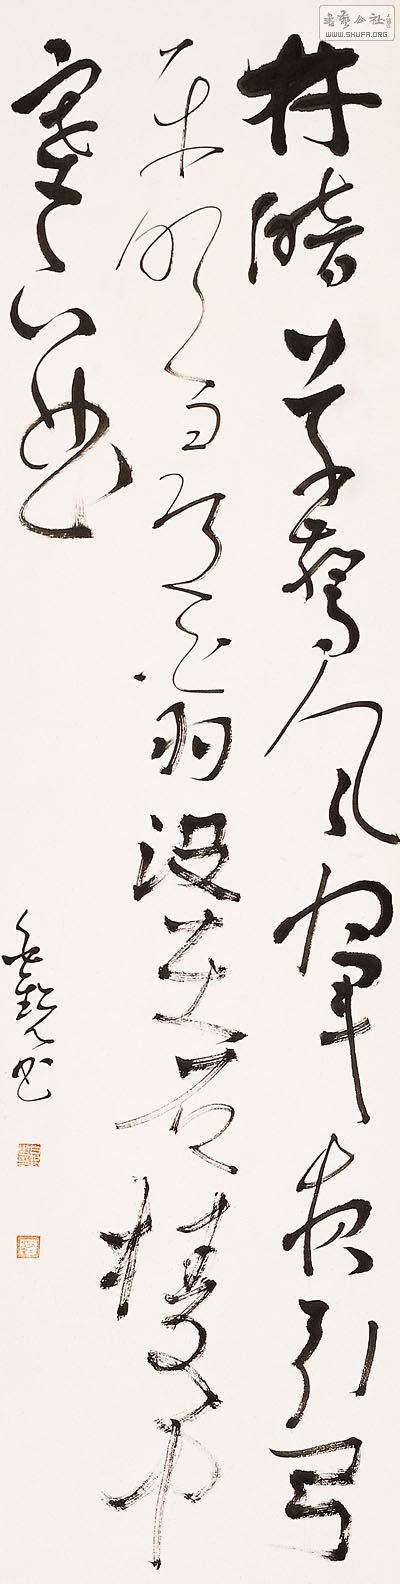 林暗草驚風將軍夜引弓
平明尋白羽沒在石棱中
塞下曲
书
书艺公社
WWW.SHUFA.ORG